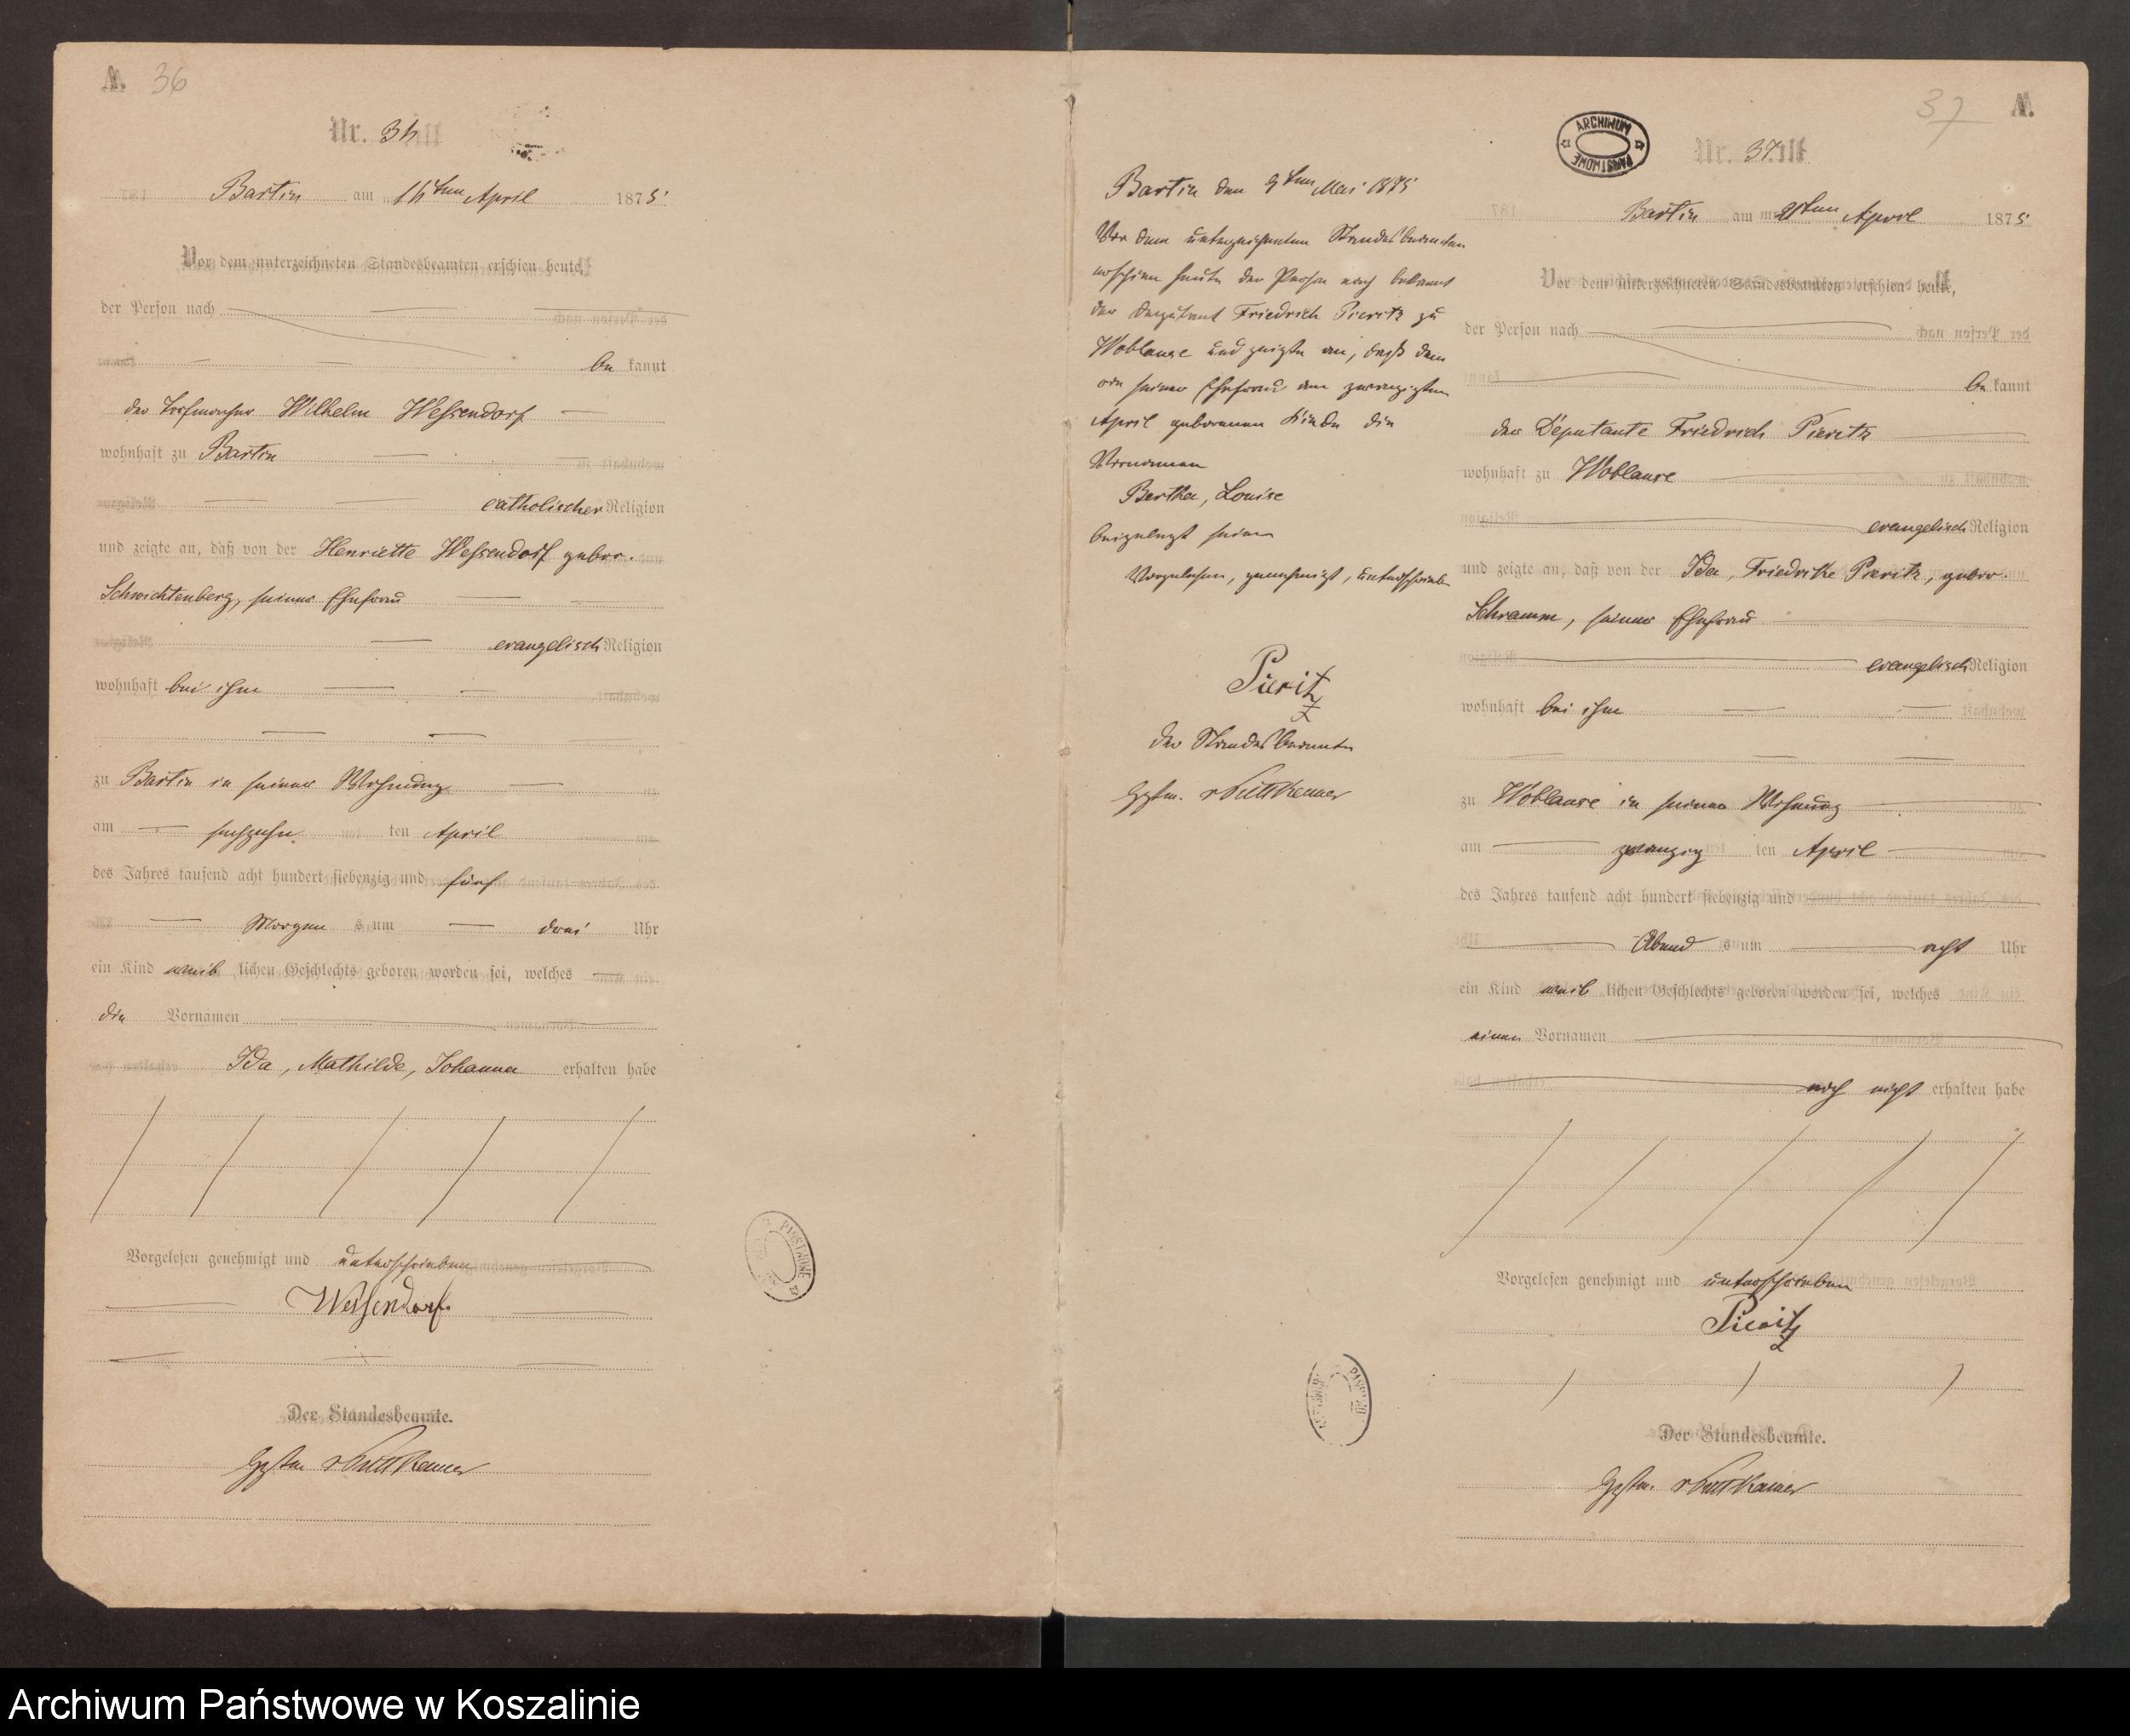 A. 36
Nr. 36
Bartin am 16ten April 1875
Vor dem unterzeichneten Standesbeamten erschien heute,
der Person nach
be kannt
der Wilhelm Wessendorf
wohnhaft zu Bartin
catholischer Religion
und zeigte an, daß von der Henriette Wessendorf gebor.
Schwichtenberg, seiner Ehefrau
evangelisch Religion
wohnhaft bei ihm
zu Bartin in seiner Wohnung
am sechszehn ten April
des Jahres tausend acht hundert siebenzig und fünf
Morgen s um drei Uhr
ein Kind weib lichen Geschlechts geboren worden sei, welches
die Vornamen
Ida, Mathilde, Johanna erhalten habe
Vorgelesen genehmigt und unterschrieben
Wessendorf.
Der Standesbeamte.
v Puttkamer
Bartin den 9ten Mai 1875
Vor dem unterzeichneten Standesbeamten
erschien heute der Person nach bekannt
der Deputant Friedrich Pieritz zu
Woblanse und zeigte an, daß dem
von seiner Ehefrau am zwanzigsten
April geborenen Kinde die
Vornamen
Bertha, Louise
beigelegt seien
Vorgelesen, genehmigt, unterschrieben
Pieritz
der Standesbeamte
v Puttkamer
ARCHIWUM PAŃSTWOWE
37 A.
Nr. 37
Bartin am 21ten April 1875
Vor dem unterzeichneten Standesbeamten erschien heute,
der Person nach
be kannt
der Deputante Friedrich Pieritz
wohnhaft zu Woblanse
evangelisch Religion
und zeigte an, daß von der Ida, Friedrike Pieritz, gebor.
Schramm, seiner Ehefrau
evangelisch Religion
wohnhaft bei ihm
zu Woblanse in seiner Wohnung
am zwanzig ten April
des Jahres tausend acht hundert siebenzig und
Abend s um acht Uhr
ein Kind weib lichen Geschlechts geboren worden sei, welches
einen Vornamen
noch nicht erhalten habe
Vorgelesen genehmigt und unterschrieben
Pieritz
Der Standesbeamte.
v Puttkamer
Archiwum Państwowe w Koszalinie